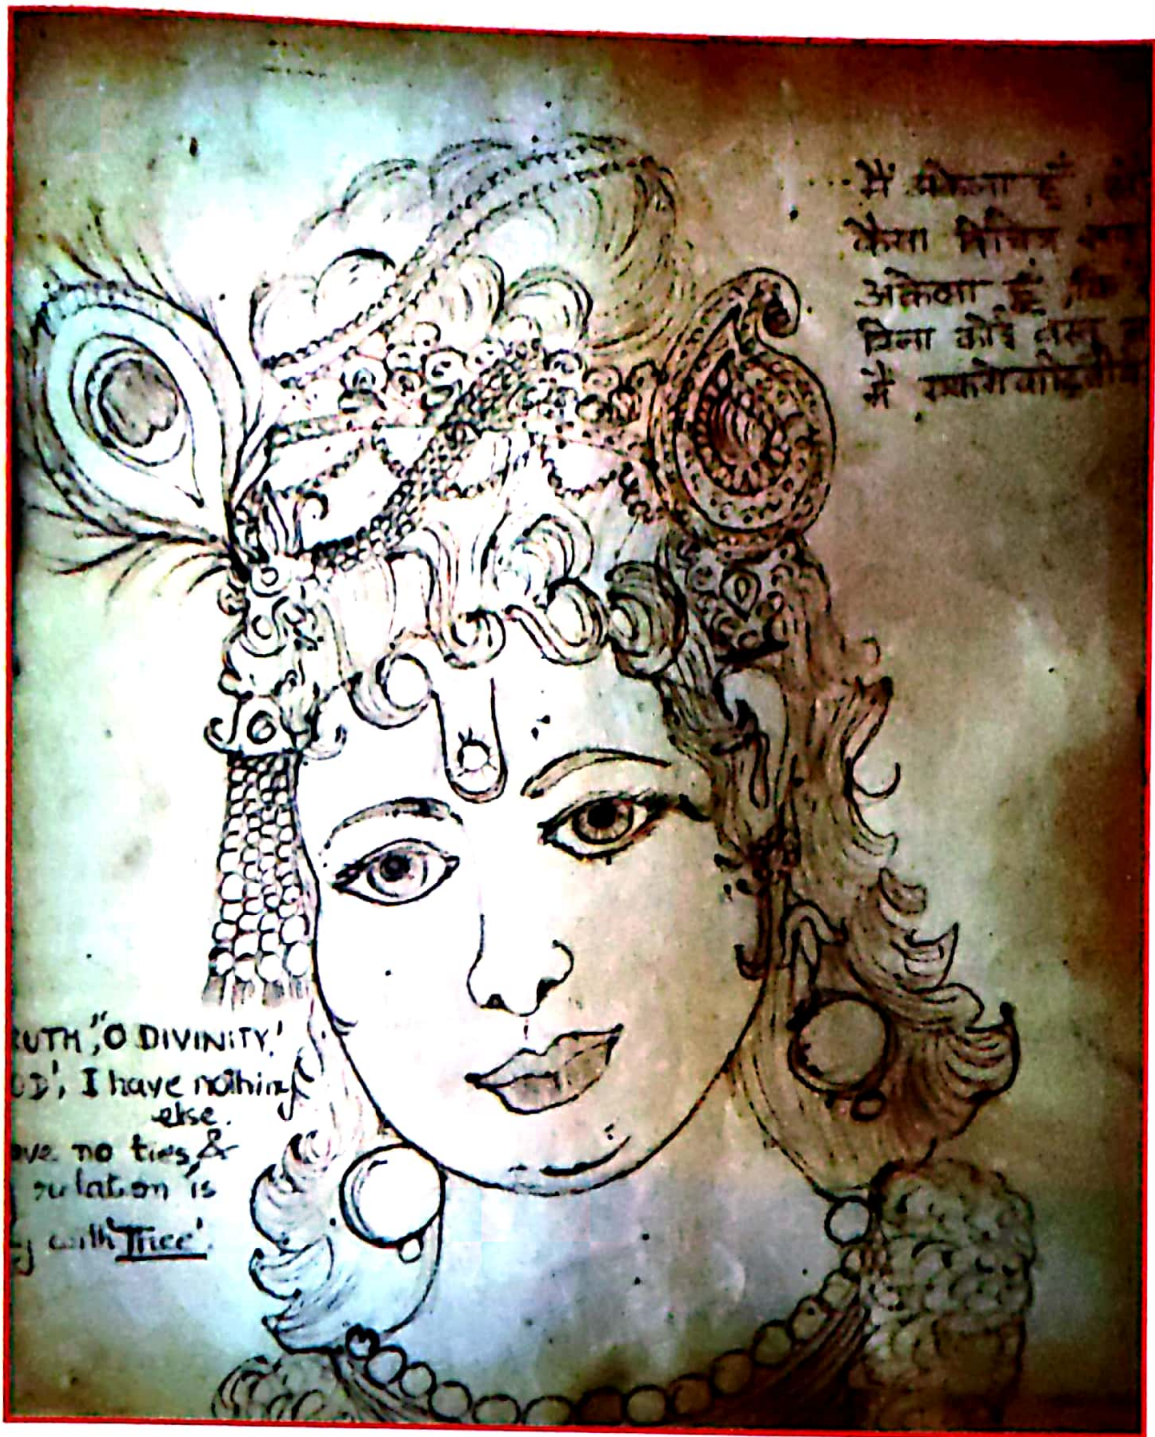 मैं अकेला हूँ,
कैसा विचित्र
अकेला हूँ, कि
बिना कोई वस्तु
में
RUTH", O DIVINITY!
OD', I have nothing
else.
ave no ties, &
relation is
ly with Thee'.